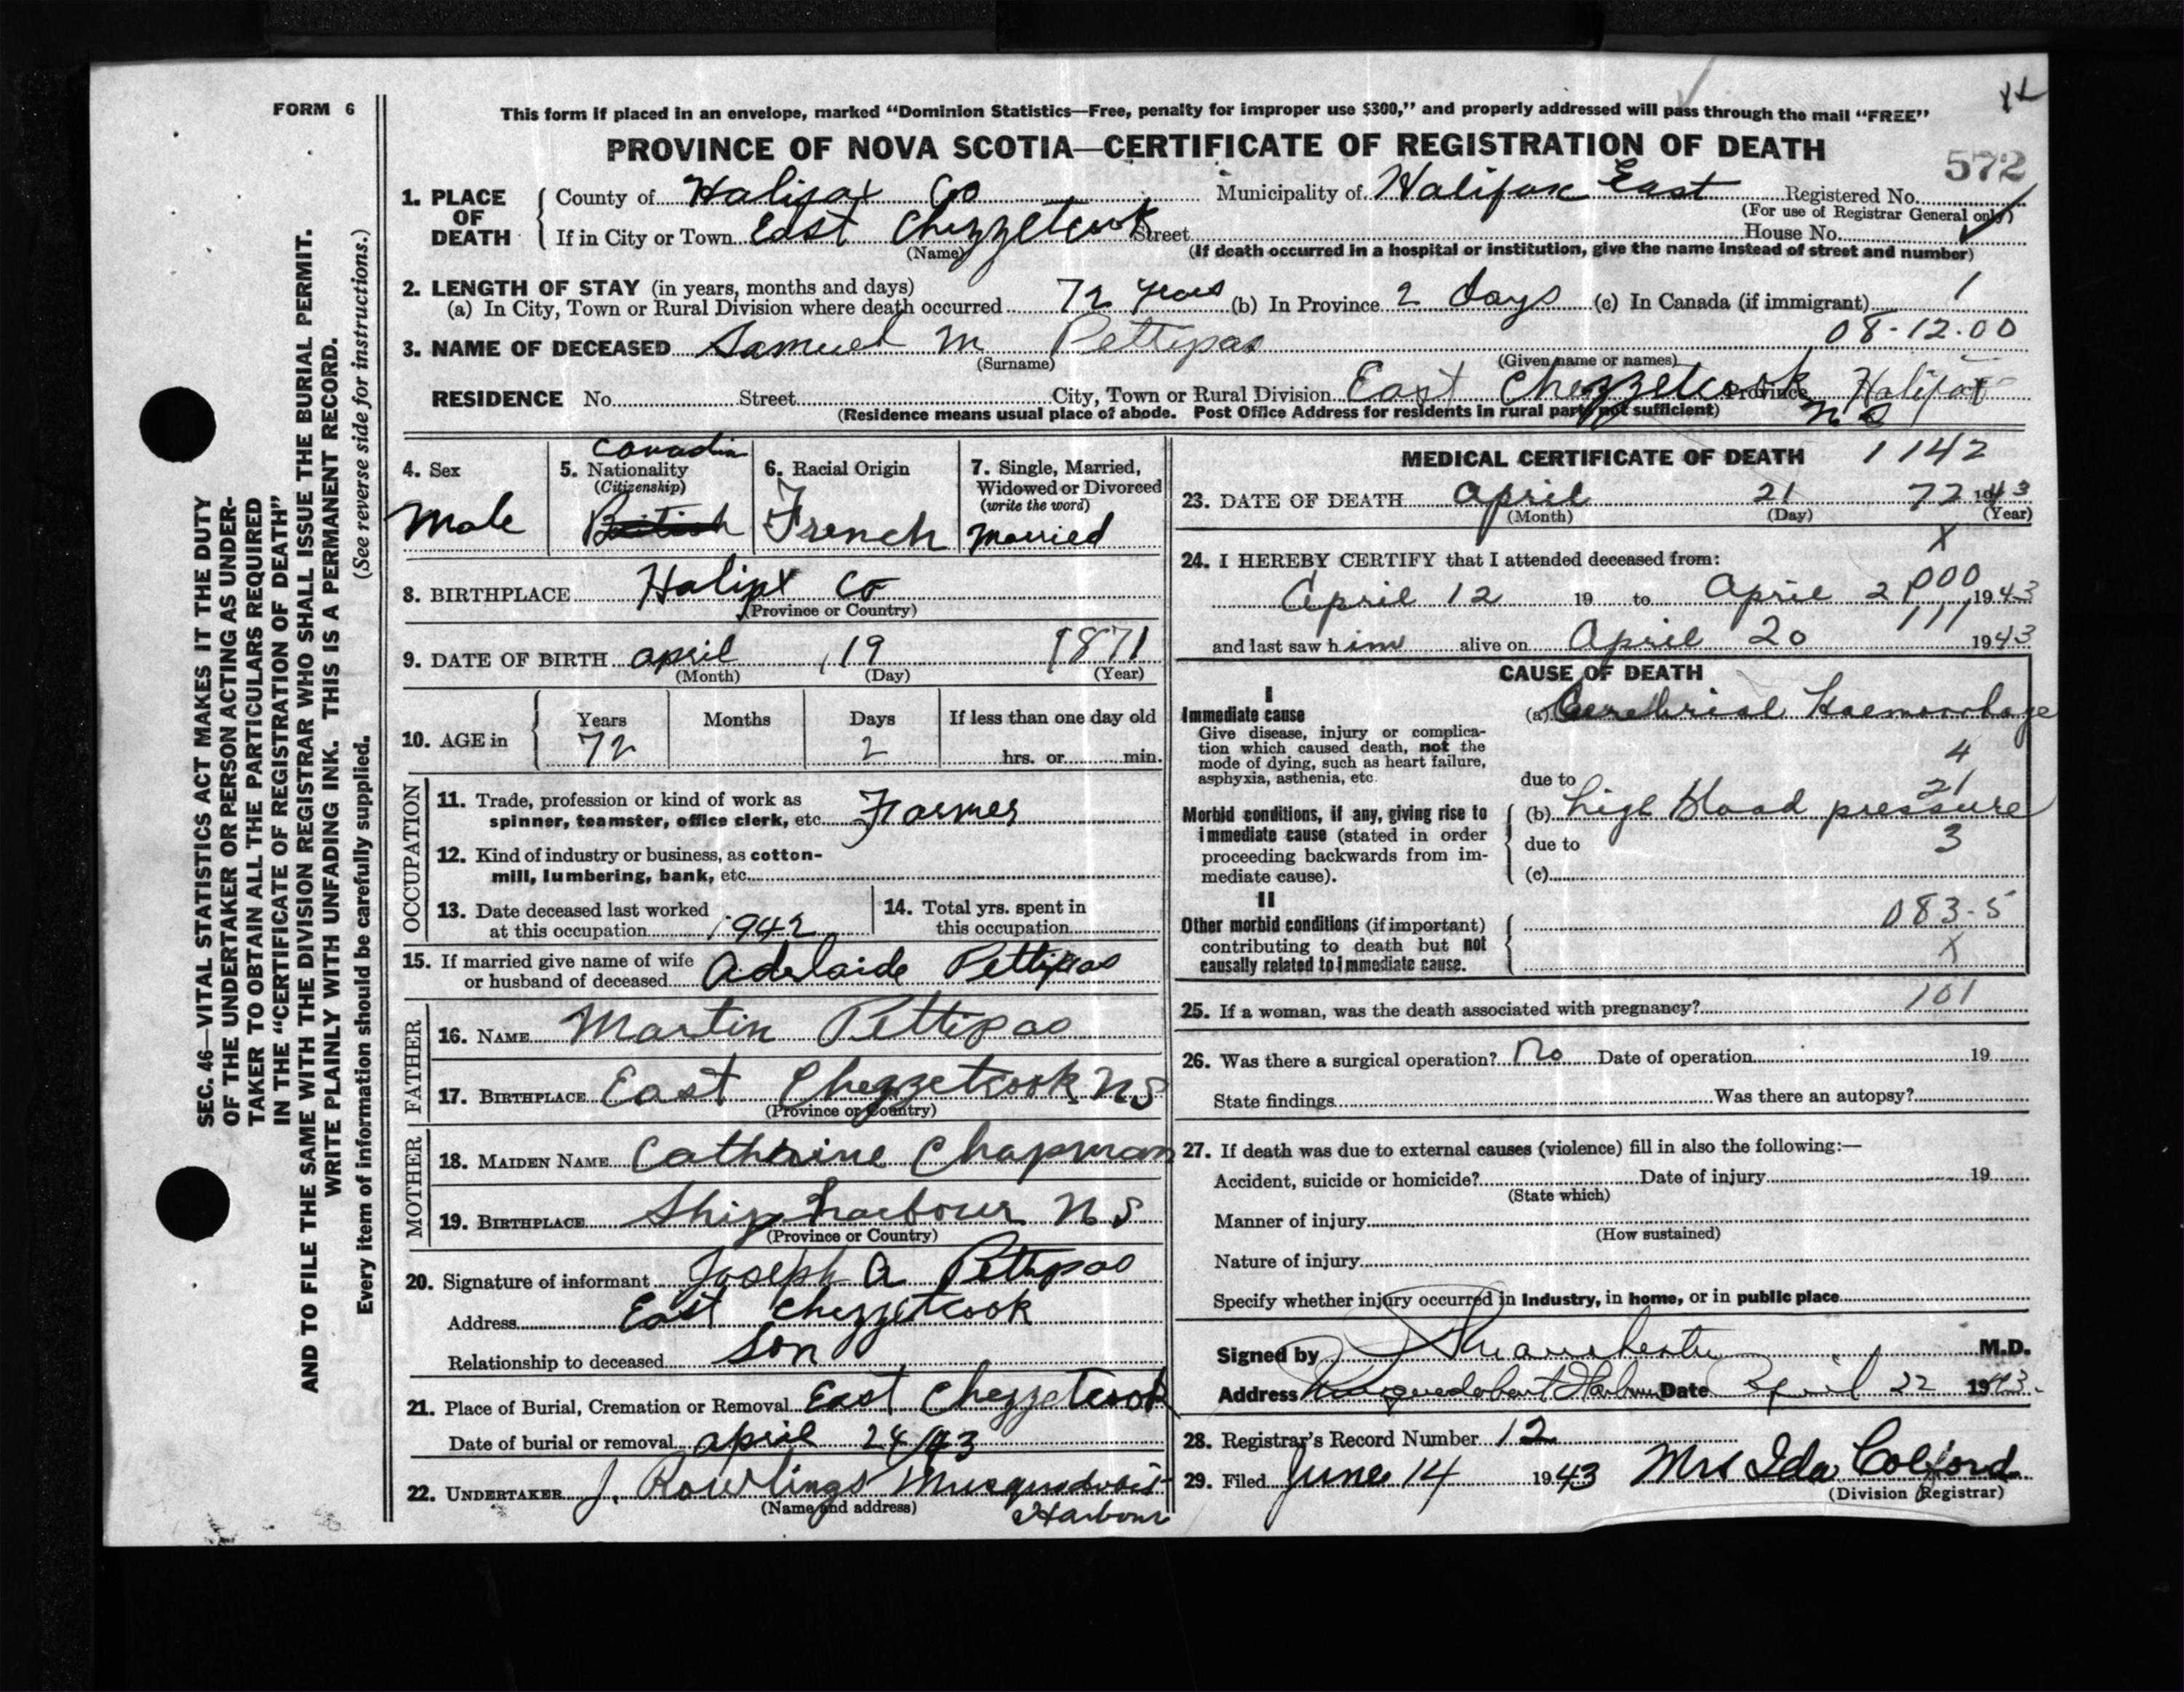 FORM 6
This form if placed in an envelope, marked "Dominion Statistics—Free, penalty for improper use $300," and properly addressed will pass through the mail "FREE"
PROVINCE OF NOVA SCOTIA—CERTIFICATE OF REGISTRATION OF DEATH
572
1. PLACE OF DEATH
County of Halifax Co Municipality of Halifax East Registered No.
(For use of Registrar General only)
If in City or Town East Chezzetcook Street House No.
(Name) (If death occurred in a hospital or institution, give the name instead of street and number)
2. LENGTH OF STAY (in years, months and days)
(a) In City, Town or Rural Division where death occurred 72 years (b) In Province 2 days (c) In Canada (if immigrant) 1
08-12.00
3. NAME OF DECEASED Samuel M Pettipas
(Surname) (Given name or names)
RESIDENCE No. Street City, Town or Rural Division East Chezzetcook Province Halifax
N S
(Residence means usual place of abode. Post Office Address for residents in rural parts not sufficient)
4. Sex
Male
Canadin
5. Nationality
(Citizenship)
British
6. Racial Origin
French
7. Single, Married,
Widowed or Divorced
(write the word)
Married
8. BIRTHPLACE Halifx Co
(Province or Country)
9. DATE OF BIRTH April 19 1871
(Month) (Day) (Year)
10. AGE in
Years Months Days If less than one day old
72 2 hrs. or min.
OCCUPATION
11. Trade, profession or kind of work as
spinner, teamster, office clerk, etc. Farmer
12. Kind of industry or business, as cotton-
mill, lumbering, bank, etc.
13. Date deceased last worked
at this occupation 1942
14. Total yrs. spent in
this occupation
15. If married give name of wife
or husband of deceased Adelaide Pettipas
FATHER
16. NAME Martin Pettipas
17. BIRTHPLACE East Chezzetcook N S
(Province or Country)
MOTHER
18. MAIDEN NAME Catherine Chapman
19. BIRTHPLACE Ship Harbour N S
(Province or Country)
20. Signature of informant Joseph A Pettipas
Address East Chezzetcook
Relationship to deceased Son
21. Place of Burial, Cremation or Removal East Chezzetcook
Date of burial or removal April 24/43
22. UNDERTAKER J. Rowlings Musquodoboit
(Name and address) Harbour
MEDICAL CERTIFICATE OF DEATH 1142
23. DATE OF DEATH April 21 72 1943
(Month) (Day) (Year)
X
24. I HEREBY CERTIFY that I attended deceased from:
000
April 12 19 to April 21 1943
111
and last saw him alive on April 20 1943
CAUSE OF DEATH
I
Immediate cause
Give disease, injury or complica-
tion which caused death, not the
mode of dying, such as heart failure,
asphyxia, asthenia, etc.
(a) Cerebrial Haemorrhage
4
due to
21
Morbid conditions, if any, giving rise to
immediate cause (stated in order
proceeding backwards from im-
mediate cause).
(b) high Blood pressure
due to 3
(c)
II
Other morbid conditions (if important)
contributing to death but not
causally related to immediate cause.
083-5
X
25. If a woman, was the death associated with pregnancy? 101
26. Was there a surgical operation? No Date of operation 19
State findings Was there an autopsy?
27. If death was due to external causes (violence) fill in also the following:—
Accident, suicide or homicide? Date of injury 19
(State which)
Manner of injury
(How sustained)
Nature of injury
Specify whether injury occurred in Industry, in home, or in public place
Signed by M.D.
Address Musquodoboit Harbour Date April 22 1943.
28. Registrar's Record Number 12
29. Filed June 14 1943 Mrs Ida Colford
(Division Registrar)
SEC. 46—VITAL STATISTICS ACT MAKES IT THE DUTY
OF THE UNDERTAKER OR PERSON ACTING AS UNDER-
TAKER TO OBTAIN ALL THE PARTICULARS REQUIRED
IN THE "CERTIFICATE OF REGISTRATION OF DEATH"
AND TO FILE THE SAME WITH THE DIVISION REGISTRAR WHO SHALL ISSUE THE BURIAL PERMIT.
WRITE PLAINLY WITH UNFADING INK. THIS IS A PERMANENT RECORD.
Every item of information should be carefully supplied. (See reverse side for instructions.)